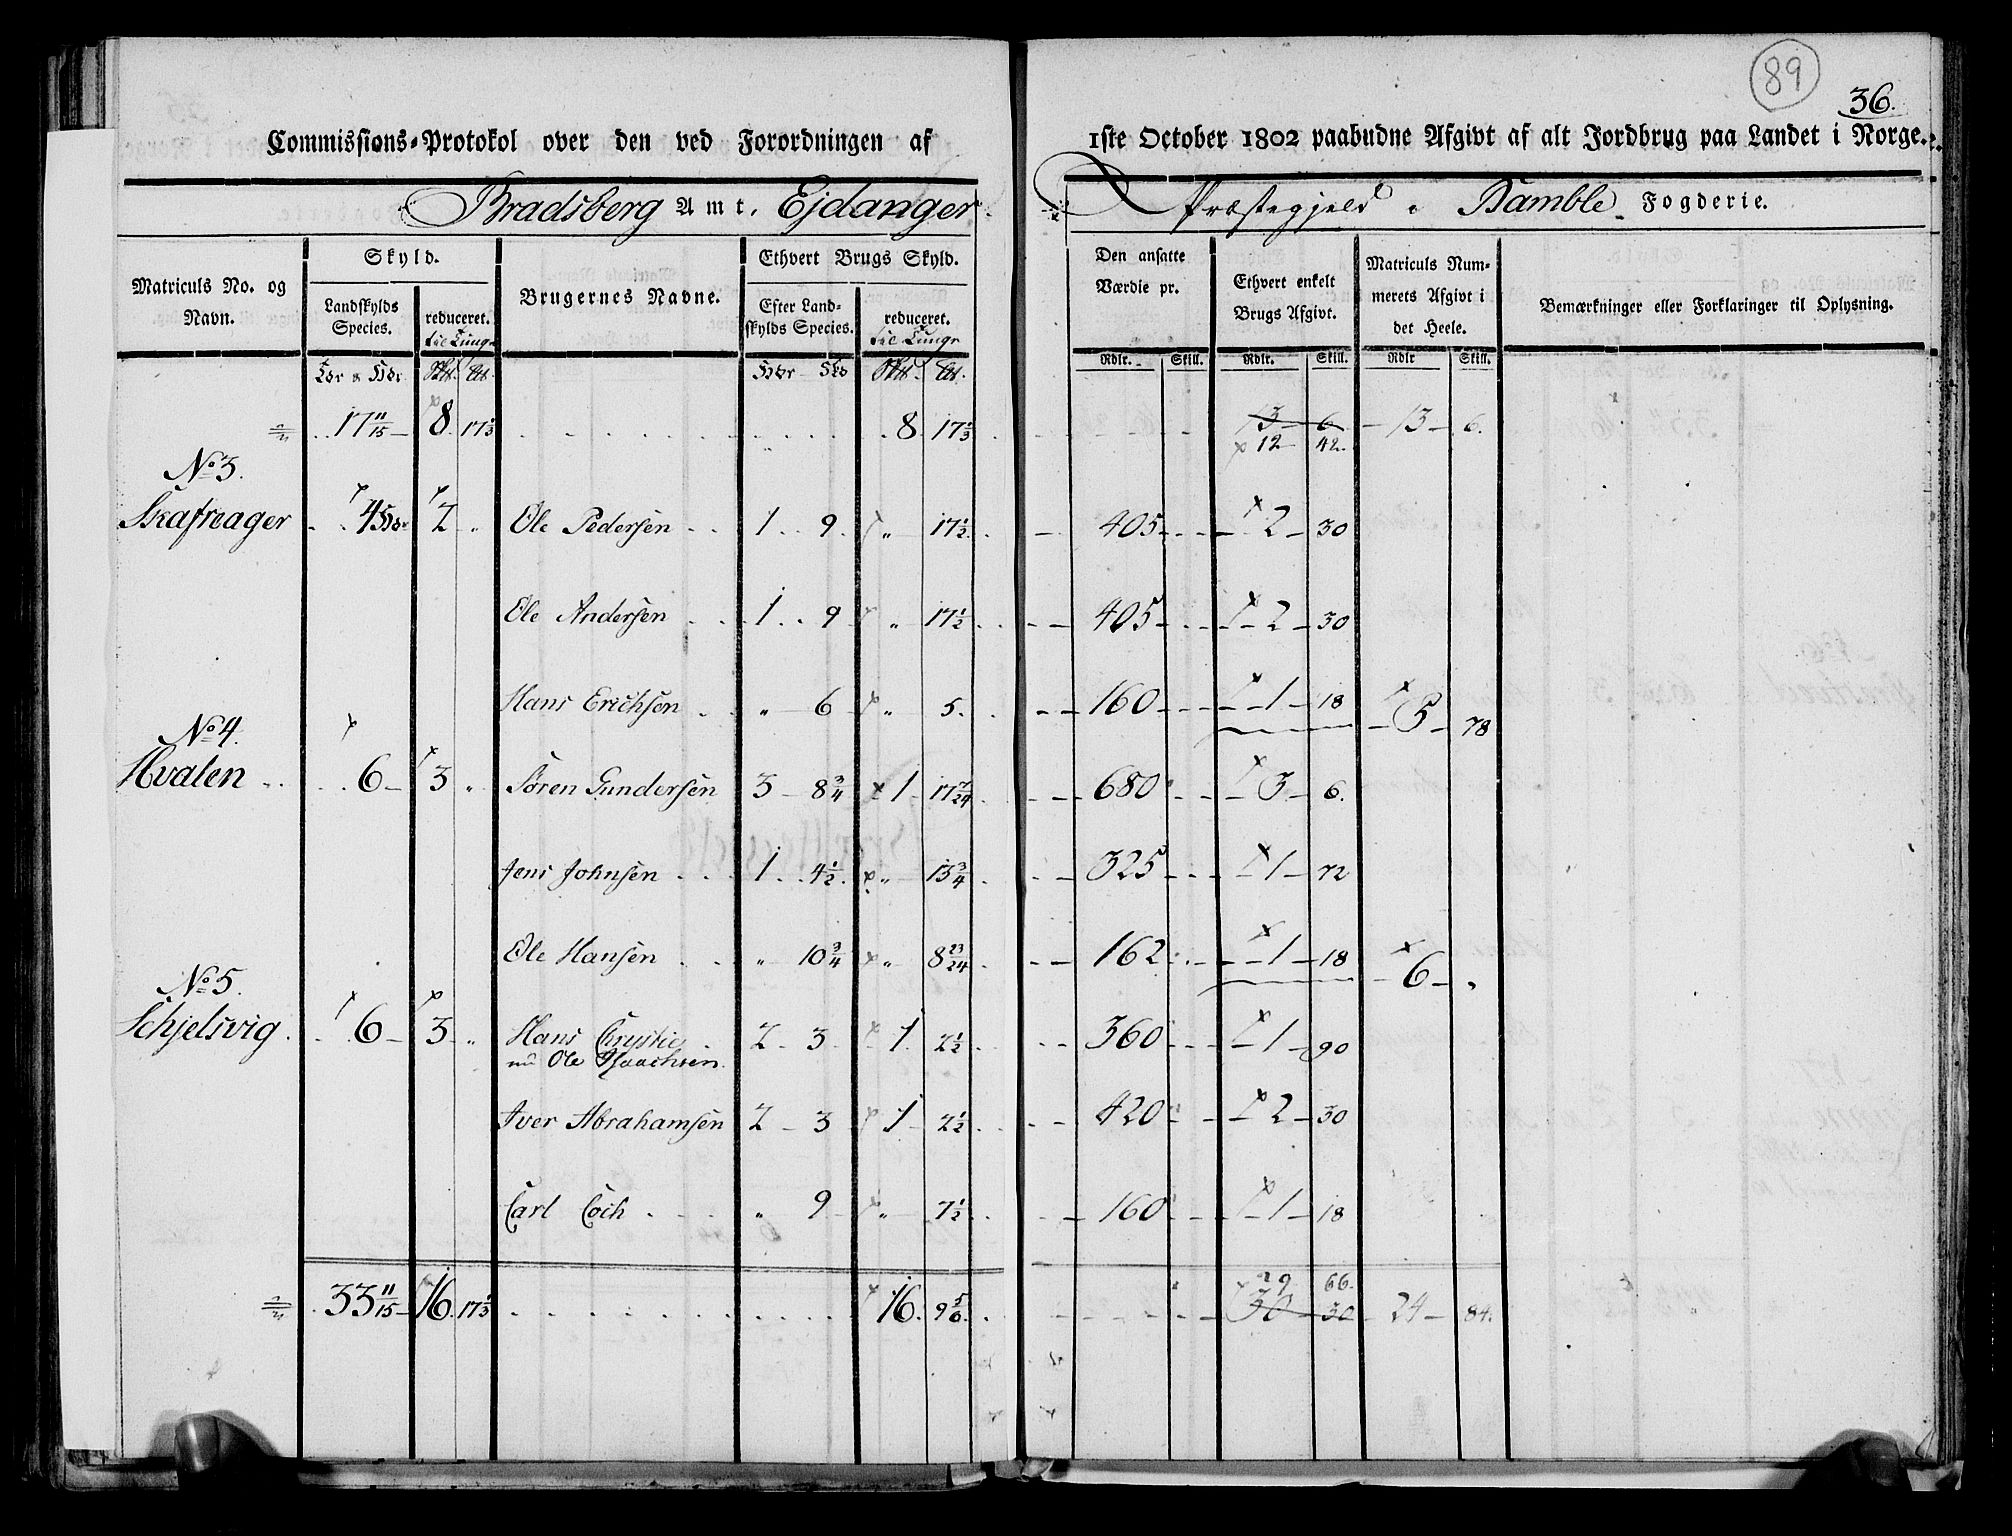 89
36.
Commissions-Protokol over den ved Forordningen af 1ste October 1802 paabudne Afgivt af alt Jordbrug paa Landet i Norge.
Bradsberg Amt, Ejdanger Præstegjeld i Bamble Fogderie.
Matriculs No. og Navn.
Skyld.
Landskylds Species.
reduceret. til Tunge
Brugernes Navne.
Ethvert Brugs Skyld.
Efter Landskylds Species.
reduceret. til Tunge
Den ansatte Værdie pr.
Ethvert enkelt Brugs Afgivt.
Matriculs Nummerets Afgivt i det Heele.
Bemærkninger eller Forklaringer til Oplysning.
Rdlr. Skill. Rdlr. Skill. Rdlr Skill.
17 11/15 8. 17 1/3 8. 17 1/3 13 6 13 6.
12 42.
No 3.
Skafreager 4 2 " Ole Pedersen 1 9 " 17 1/2 405 2 30
Ole Andersen 1 9 " 17 1/2 405 2 30
Hans Erichsen " 6 " 5. 160 1 18 5 78
No 4.
Hvalen 6 3 " Søren Gundersen 3 8 3/4 1 17 7/24 680 3 6.
Jens Johnsen 1 4 1/2 " 13 3/4 325 1 72
Ole Hansen " 10 3/4 " 8 23/24 162 1 18 6 "
No 5.
Schjelsvig 6 3 " Hans Christie 2 3 1 2 1/2 360 1 90
nu Ole Isaachsen.
Iver Abrahamsen 2 3 1 2 1/2 420 2 30
Carl Coch " 9 " 7 1/2 160 1 18
29 66.
33 11/15 16. 17 1/3 16. 9 5/6 30 30 24 84.